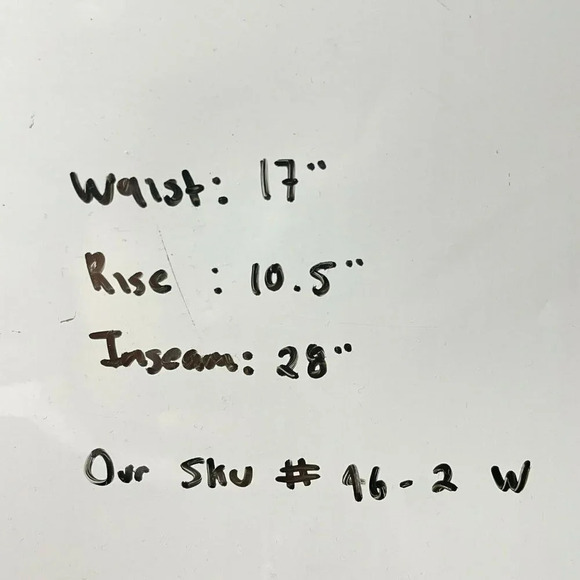 Waist: 17"
Rise : 10.5"
Inseam: 28"
Our Sku # 96-2 W